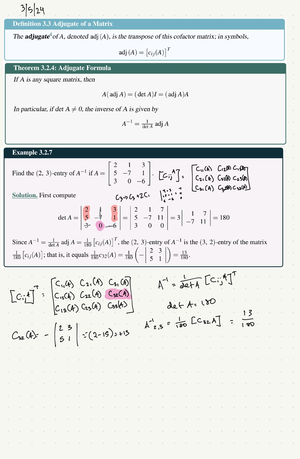 3/5/24
Definition 3.3 Adjugate of a Matrix
The adjugate⁴ of A, denoted adj (A), is the transpose of this cofactor matrix; in symbols,
adj (A) = [c_ij(A)]^T
Theorem 3.2.4: Adjugate Formula
If A is any square matrix, then
A(adj A) = (det A)I = (adj A)A
In particular, if det A ≠ 0, the inverse of A is given by
A^-1 = 1/det A adj A
Example 3.2.7
Find the (2, 3)-entry of A^-1 if A = [2 1 3; 5 -7 1; 3 0 -6].
Solution. First compute
det A = |2 1 3; 5 -7 1; 3 0 -6| = |2 1 7; 5 -7 11; 3 0 0| = 3 |1 7; -7 11| = 180
Since A^-1 = 1/det A adj A = 1/180 [c_ij(A)]^T, the (2, 3)-entry of A^-1 is the (3, 2)-entry of the matrix
1/180 [c_ij(A)]; that is, it equals 1/180 c_32(A) = 1/180 (-|2 3; 5 1|) = 13/180.
A^-1 = 1/det A [C_ij A]^T
det A = 180
C_32(A) = - |2 3; 5 1| = -(2-15) = +13
A^-1_2,3 = 1/180 [C_32 A] = 13/180